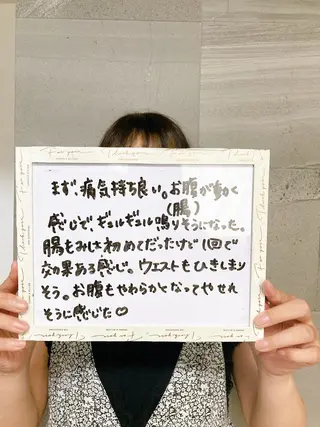 まず、痛気持ち良い。お腹が動く
(腸)
感じで、ギュルギュル鳴りそうになった。
腸もみは初めてだったけど1回で
効果ある感じ。ウエストもひきしまり
そう。お腹もやわらかくなってやせれ
そうに感じた♡
Thank you
For you